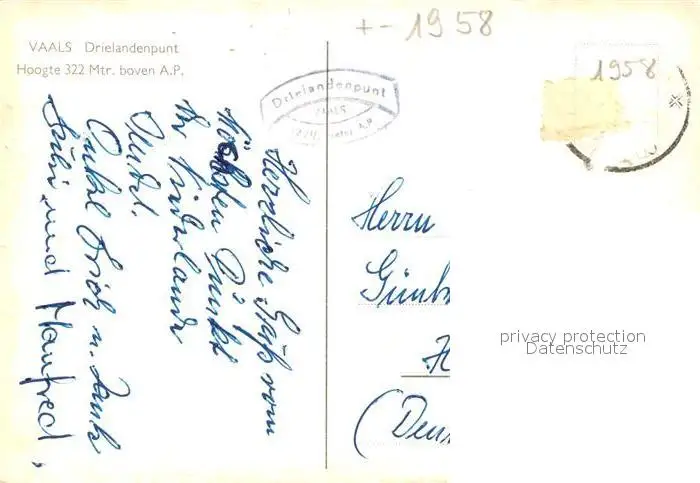 + - 1958
VAALS Drielandenpunt
Hoogte 322 Mtr. boven A.P.
1958
Drielandenpunt
VAALS
A.P.
Herzliche Grüß vom
höchsten Punkt
der Niederlande
Onkel Erich u. Tante
und Manfred,
Herrn
Günth
H
(Deu
privacy protection
Datenschutz